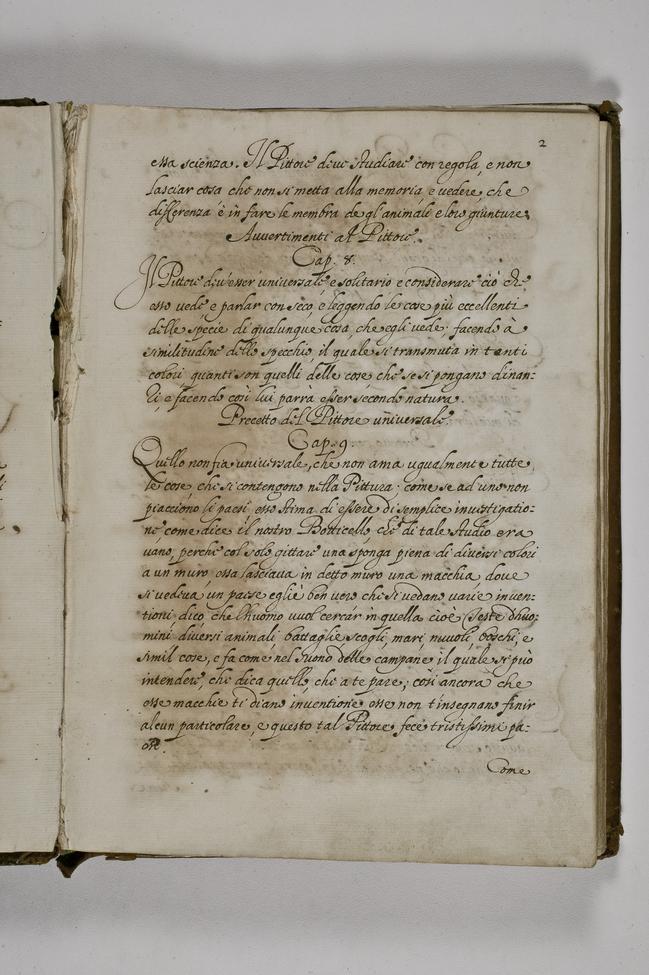 2
essa scienza. Il Pittore deve studiare con regola, e non
lasciar cosa che non si metta alla memoria e vedere, che
differenza è in fare le membra degl'animali e loro giunture.
Avvertimenti al Pittore.
Cap. 8.
Il Pittore dev'esser universale e solitario e considerare ciò che
esso vede e parlar con seco, e leggendo le cose più eccellenti
delle specie di qualunque cosa, che egli vede, facendo à
similitudine dello specchio, il quale si transmuta in tanti
colori, quanti son quelli delle cose che se si pongano dinan:
zi, e facendo così lui parra esser secondo natura.
Precetto del Pittore universale.
Cap. 9.
Quello non fia universale, che non ama ugualmente tutte
le cose che si contengono nella Pittura; come se ad uno non
piacciono li paesi esso stima di essere di semplice investigatio:
ne come dice il nostro Botticello, che di tale studio era
vano, perche col solo gittare una sponga piena di diversi colori
a un muro, essa lasciava in detto muro una macchia, dove
si vedeva un paese eglie ben vero che si vedano varie inven:
tioni, dico, che l'huomo vuol cercar in quella cioè Teste d'huo:
mini, diversi animali, battaglie scogli, mari, nuvoli, boschi, e
simil cose, e fa come nel suono delle campane, il quale si può
intendere, che dica quello, che a te pare; così ancora che
esse macchie ti diano inventione esse non t'insegnano finir
alcun particolare, e questo tal Pittore fece tristissimi pa:
esi.
Come